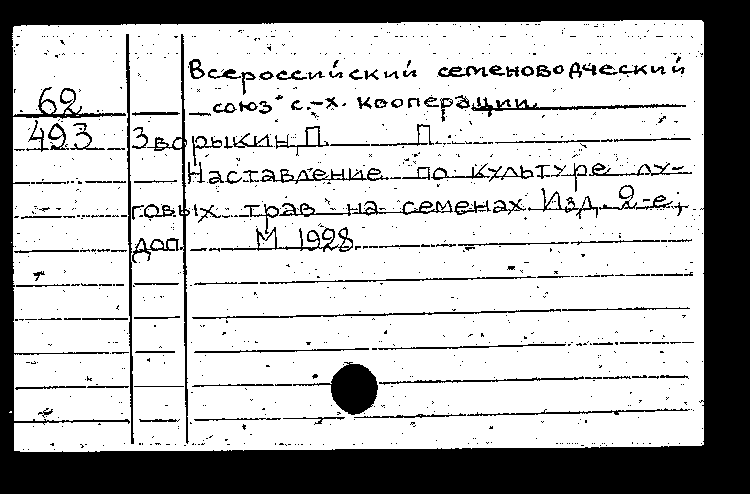 Всероссийский семеноводческий
62 союз с.-х. кооперации.
493 Зворыкин, П. П.
Наставление по культуре лу-
говых трав на семенах. Изд. 2-е,
доп. М. 1928.